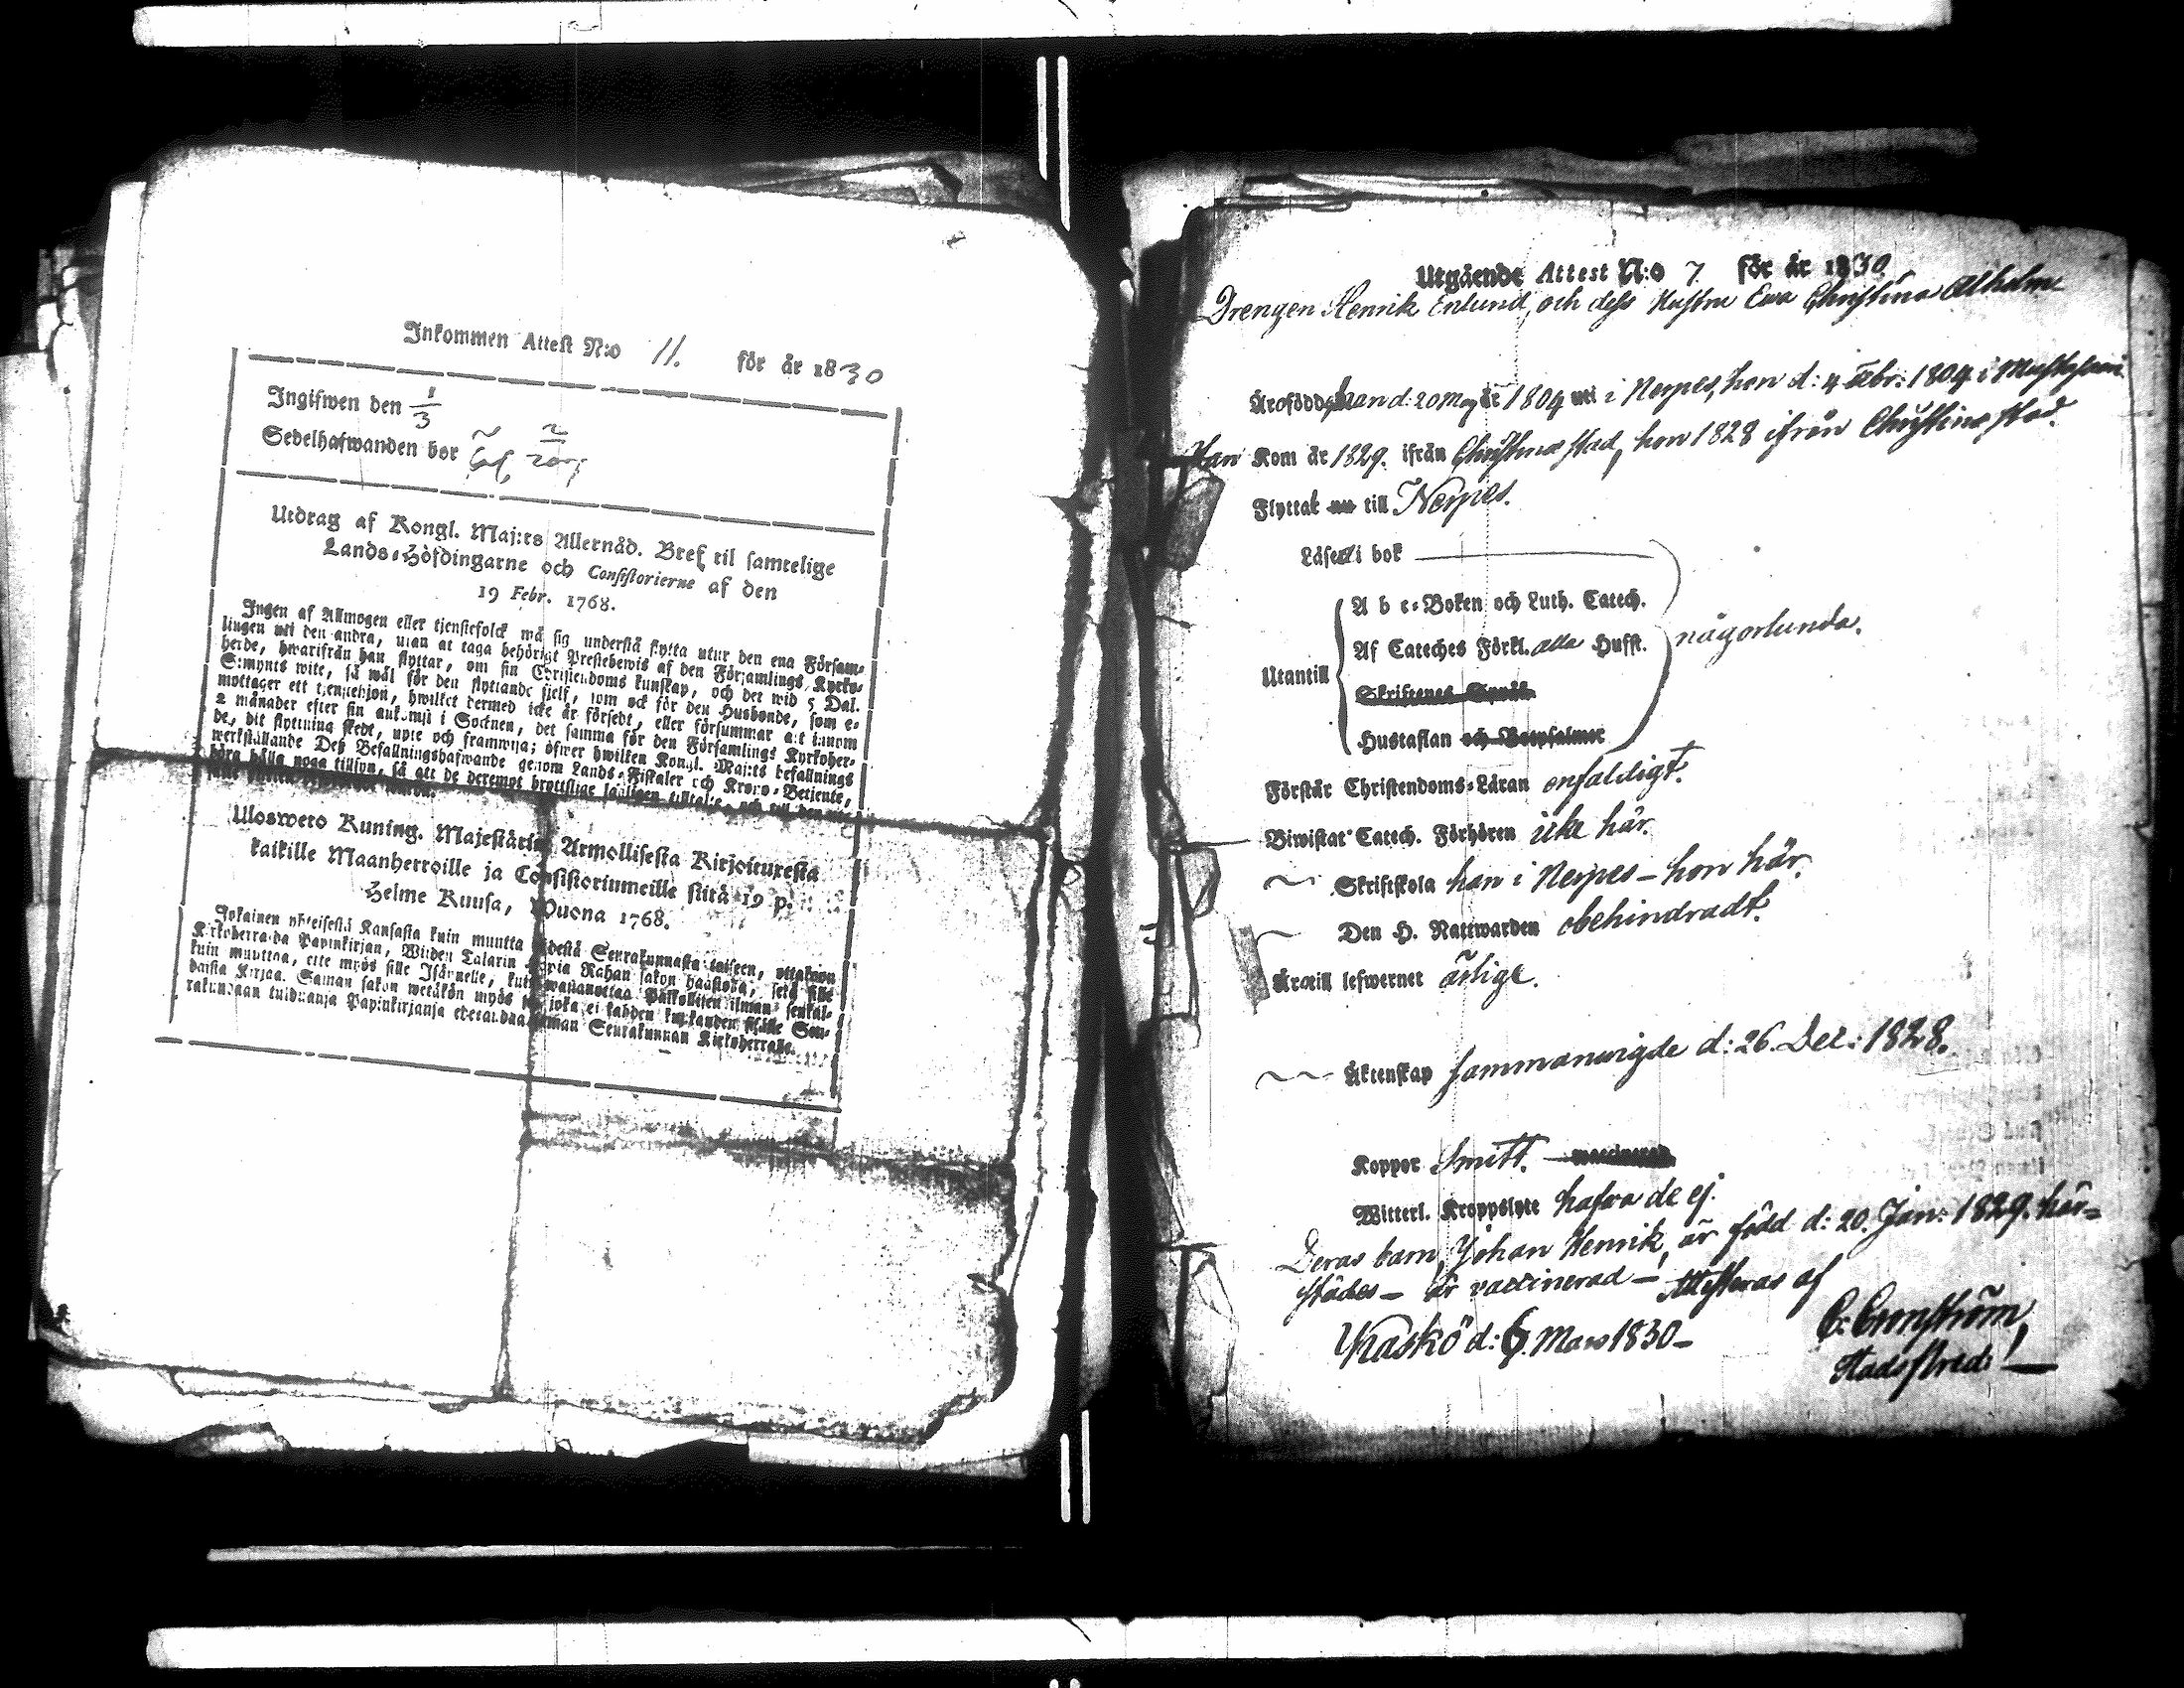 Inkommen Attest N:o 11. för år 1830
Ingifwen den 1/3
Sedelhafwanden bor
Utdrag af Kongl. Maj:ts Allernåd. Bref til samtelige
Lands-Höfdingarne och Consistorierne af den
19 Febr. 1768.
Ingen af Allmogen eller tjenstefolck må sig understå flytta utur den ena Försam-
lingen uti den andra, utan at taga behörigt Prestebewis af den Församlings Kyrko-
herde, hwarifrån han flyttar, om sin Christendoms kunskap, och det wid 5 Dal.
S:mynts wite, så wäl för den flyttande sjelf, som ock för den Husbonde, som e-
mottager ett tjenstehjon, hwilket dermed icke är försedt, eller försummar att innom
2 månader efter sin ankomst i Socknen, det samma för den Församlings Kyrkoher-
de, dit flyttning skedt, upte och framwisa; öfwer hwilken Kongl. Maj:ts befallnings
werkställande Deß Befallningshafwande genom Lands-Fiskaler och Krono-Betjente,
böra hålla noga tillsyn, så att de deremot brottslige
Ulosweto Kuning. Majestätin Armollisesta Kirjoituxesta
kaikille Maanherroille ja Consistoriumeille siitä 19 p.
Helme Kuusa, Wuona 1768.
Jokainen yhteisestä Kansasta kuin muutta yhdestä Seurakunnasta toiseen, ottakoon
Kirkoherralda Papinkirjan, Wijden Talarin Hopia Rahan sakon haastolla, setä sille
kuin muuttaa, ette myös sille Isännelle, kuin wastanottaa Palkollisen ilman senkal-
daista Kirjaa. Saman sakon wetäkön myös se, joka ei kahden kuukauden sisälle Seu-
rakundaan tulduansa Papinkirjansa ederanna saman Seurakunnan Kirkoherralle.
Utgående Attest N:o 7 för år 1830
Drengen Henrik Enlund, och dess Hustru Ewa Christina Alholm
Äro födde, han d: 20 May år 1804 uti i Nerpes, hon d: 4 Febr: 1804 i
Han Kom år 1829. ifrån Christinestad, hon 1828 ifrån Christinestad.
Flyttat nu till Nerpes.
Läser i bok
A b c-Boken och Luth. Catech.
Af Cateches Förkl. alla Hufst. någorlunda.
Utantill
Hustaflan och Botpsalmer
Förstår Christendoms-Läran enfaldigt.
Biwistat Catech. Förhören icke här.
Skriftskola han i Nerpes - hon här.
Den H. Nattwarden obehindradt.
Äro till lefwernet ärlige.
Äktenskap sammanwigde d: 26. Dec: 1828.
Koppor Smitt. vaccinerad
Witterl. Kroppslyte hafwa de ej.
Deras barn, Johan Henrik, är född d: 20. Jan: 1829. här-
städes - är vaccinerad - Attesteras af
Kaskö d: 6. Mars 1830 -